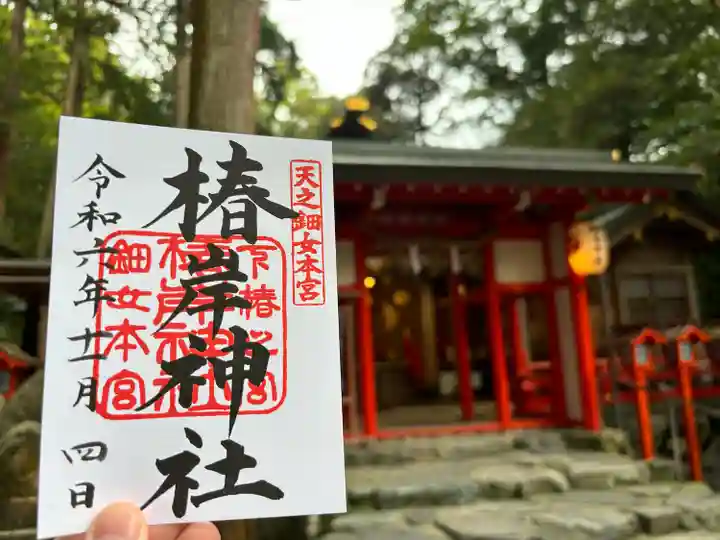 天之鈿女本宮
椿岸神社
鈿女本宮
令和六年十一月四日